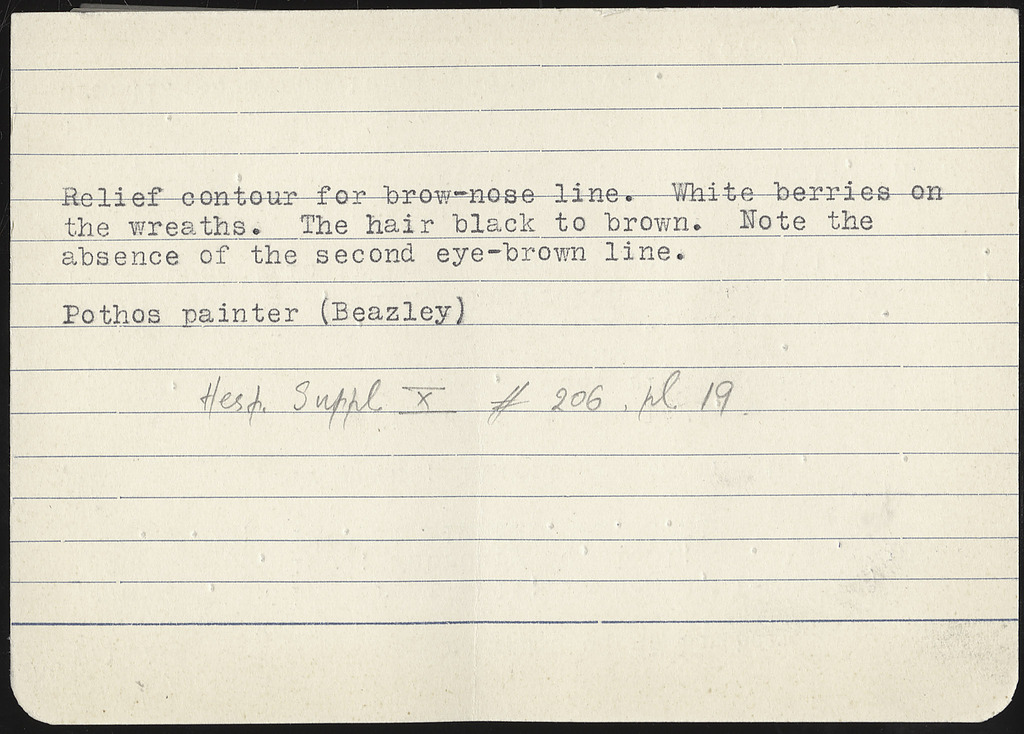 Relief contour for brow-nose line. White berries on
the wreaths. The hair black to brown. Note the
absence of the second eye-brown line.
Pothos painter (Beazley)
Hesp. Suppl. X # 206, pl. 19.